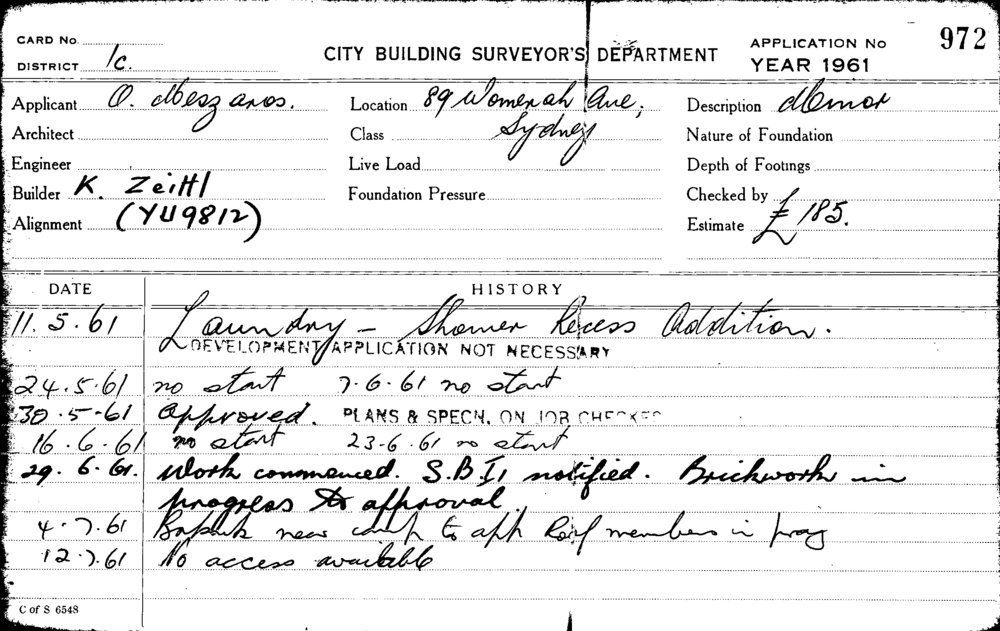 CARD No.
DISTRICT 1c.
CITY BUILDING SURVEYOR'S DEPARTMENT
APPLICATION No 972
YEAR 1961
Applicant O. Meszaros.
Location 89 Womerah Ave,
Sydney
Description Minor
Architect
Class
Nature of Foundation
Engineer
Live Load
Depth of Footings
Builder K. Zeitl
Foundation Pressure
Checked by
Alignment (YU9812)
Estimate £185.
DATE HISTORY
11.5.61 Laundry - Shower Recess Addition.
DEVELOPMENT APPLICATION NOT NECESSARY
24.5.61 no start 7.6.61 no start
30.5-61 Approved. PLANS & SPECN. ON JOB CHECKED
16.6.61 no start 23.6.61 no start
29.6.61. Work commenced. S.B.I. notified. Brickwork in
progress to approval.
4.7.61 near comp to app Roof members in prog
12.7.61 No access available
C of S 6548